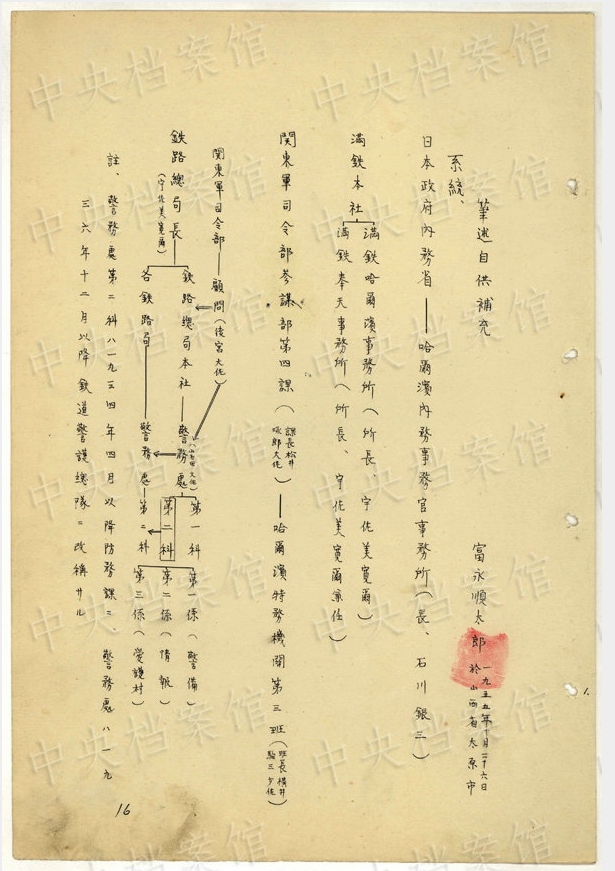 筆述自供補充
富永順太郎
一九五五年十月二十六日
於山西省太原市
系統、
日本政府内務省——哈爾濱内務事務官事務所(長、石川銀三)
満鉄本社
満鉄哈爾濱事務所(所長、宇佐美寛爾)
満鉄奉天事務所(所長、宇佐美寛爾兼任)
関東軍司令部参謀部第四課(課長松井
大佐)——哈爾濱特務機関第三班(班長横井
少佐)
関東軍司令部——顧問(後宮大佐)
鉄路総局長
(宇佐美寛爾)
鉄路總局本社——警務處
各鉄路局——警務處——第二科
第一科
第二科
第一係(警備)
第二係(情報)
第三係(愛護村)
註、警務處第二科ハ一九三四年四月以降防務課ニ、警務處ハ一九
三六年十二月以降鉄道警護總隊ニ改稱サル
16
中央档案馆